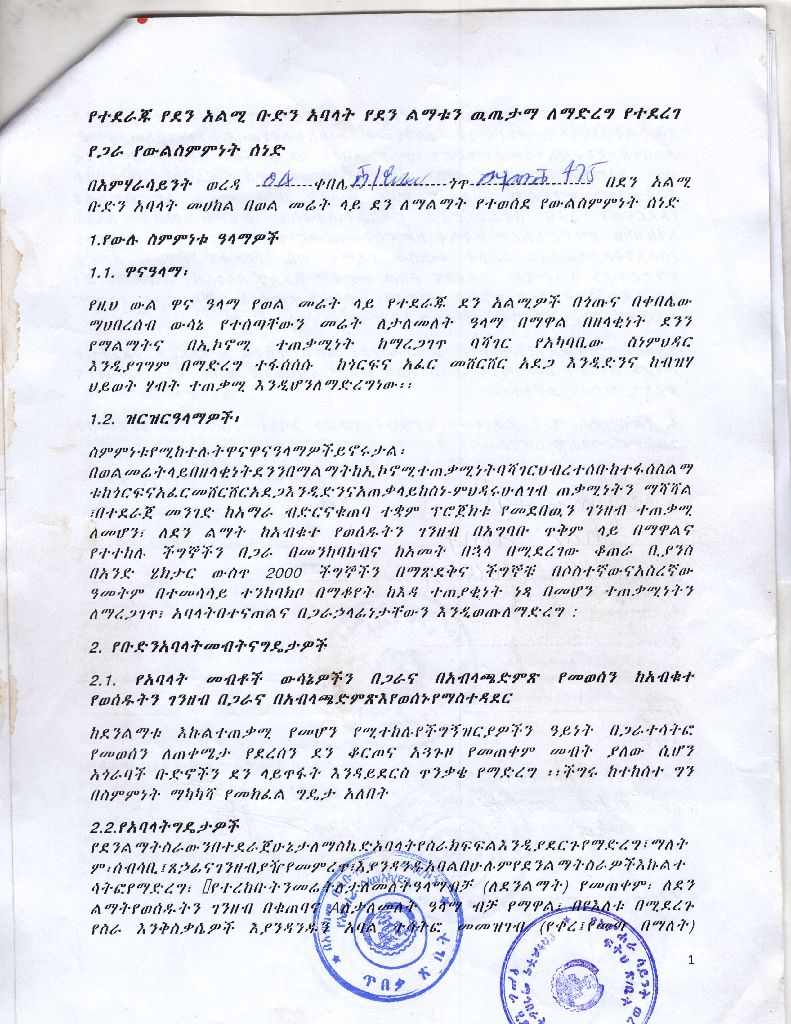 የተደራጁ የደን አልሚ ቡድን አባላት የደን ልማቱን ዉጤታማ ለማድረግ የተደረገ
የጋራ የውልስምምነት ሰነድ
በአምሃራሳይንት ወረዳ 04 ቀበሌ ጎጥ በደን አልሚ
ቡድን አባላት መሀከል በወል መሬት ላይ ደን ለማልማት የተወሰደ የውልስምምነት ሰነድ
1.የውሉ ስምምነቱ ዓላማዎች
1.1. ዋናዓላማ፡
የዚህ ውል ዋና ዓላማ የወል መሬት ላይ የተደራጁ ደን አልሚዎች በጎጡና በቀበሌው
ማህበረሰብ ውሳኔ የተሰጣቸውን መሬት ለታለመለት ዓላማ በማዋል በዘላቂነት ደንን
የማልማትና በኢኮኖሚ ተጠቃሚነት ከማረጋገጥ ባሻገር የአካባቢው ስነምህዳር
እንዲያገግም በማድረግ ተፋሰስሱ ከጎርፍና አፈር መሸርሸር አደጋ እንዲድንና ከብዝሃ
ህይወት ሃብት ተጠቃሚ እንዲሆንለማድረግነው፡፡
1.2. ዝርዝርዓላማዎች፡
ስምምነቱየሚከተሉትዋናዋናዓላማዎችይኖሩታል፡
በወልመሬትላይበዘላቂነትደንንበማልማትከኢኮኖሚተጠቃሚነትባሻገርህብረተሰቡከተፋሰስልማ
ቱከጎርፍናአፈርመሸርሸርአደጋእንዲድንናአጠቃላይከስነ-ምህዳሩሁለገብ ጠቃሚነትን ማሻሻል
፣በተደራጀ መንገድ ከአማራ ብድርናቁጠባ ተቋም ፕሮጀክቱ የመደበዉን ገንዘብ ተጠቃሚ
ለመሆን፣ ለደን ልማት ከአብቁተ የወሰዱትን ገንዘብ በአግባቡ ጥቅም ላይ በማዋልና
የተተከሉ ችግኞችን በጋራ በመንከባከብና ከአመት በኋላ በሚደረገው ቆጠራ ቢያንስ
በአንድ ሄክታር ውስጥ 2000 ችግኞችን በማጽደቅና ችግኞቹ በሶስተኛውናአስረኛው
ዓመትም በተመሳሳይ ተንከባክቦ በማቆየት ከእዳ ተጠያቂነት ነጻ በመሆን ተጠቃሚነትን
ለማረጋገጥ፣ አባላትበተናጠልና በጋራኃላፊነታቸውን እንዲወጡለማድረግ ፡
2. የቡድንአባላትመብትናግዴታዎች
2.1. የአባላት መብቶች ውሳኔዎችን በጋራና በአብላጫድምጽ የመወሰን ከአብቁተ
የወሰዱትን ገንዘብ በጋራና በአብላጫድምጽእየወሰኑየማስተዳደር
ከደንልማቱ እኩልተጠቃሚ የመሆን የሚተከሉየችግኝዝርያዎችን ዓይነት በጋራተሳትፎ
የመወሰን ለጠቀሜታ የደረሰን ደን ቆርጦና አጓጉዞ የመጠቀም መብት ያለው ሲሆን
አጎራባች ቡድኖችን ደን ላይጥፋት እንዳይደርስ ጥንቃቄ የማድረግ ፡፡ችግሩ ከተከሰተ ግን
በስምምነት ማካካሻ የመክፈል ግዴታ አለበት
2.2.የአባላትግዴታዎች
የደንልማትስራውንበተደራጀሁኔታለማስኬድአባላትየስራክፍፍልእንዲያደርጉየማድረግ፣ማለት
ም፡ሰብሳቢ፣ጸኃፊናገንዘብያዥየመምረጥ፣እያንዳንዱአባልበሁሉምየደንልማትስራዎችእኩልተ
ሳትፎየማድረግ፣ የተረከቡትንመሬትለታለመለትዓላማብቻ (ለደንልማት) የመጠቀም፣ ለደን
ልማትየወሰዱትን ገንዘብ በቁጠባና ለታለመለት ዓላማ ብቻ የማዋል፣ በየእለቱ በሚደረጉ
የስራ እንቅስቃሴዎች እያንዳንዱን አባል ተሳትፎ መመዝገብ (የቀረ፣የሰጠ በማለት)
1